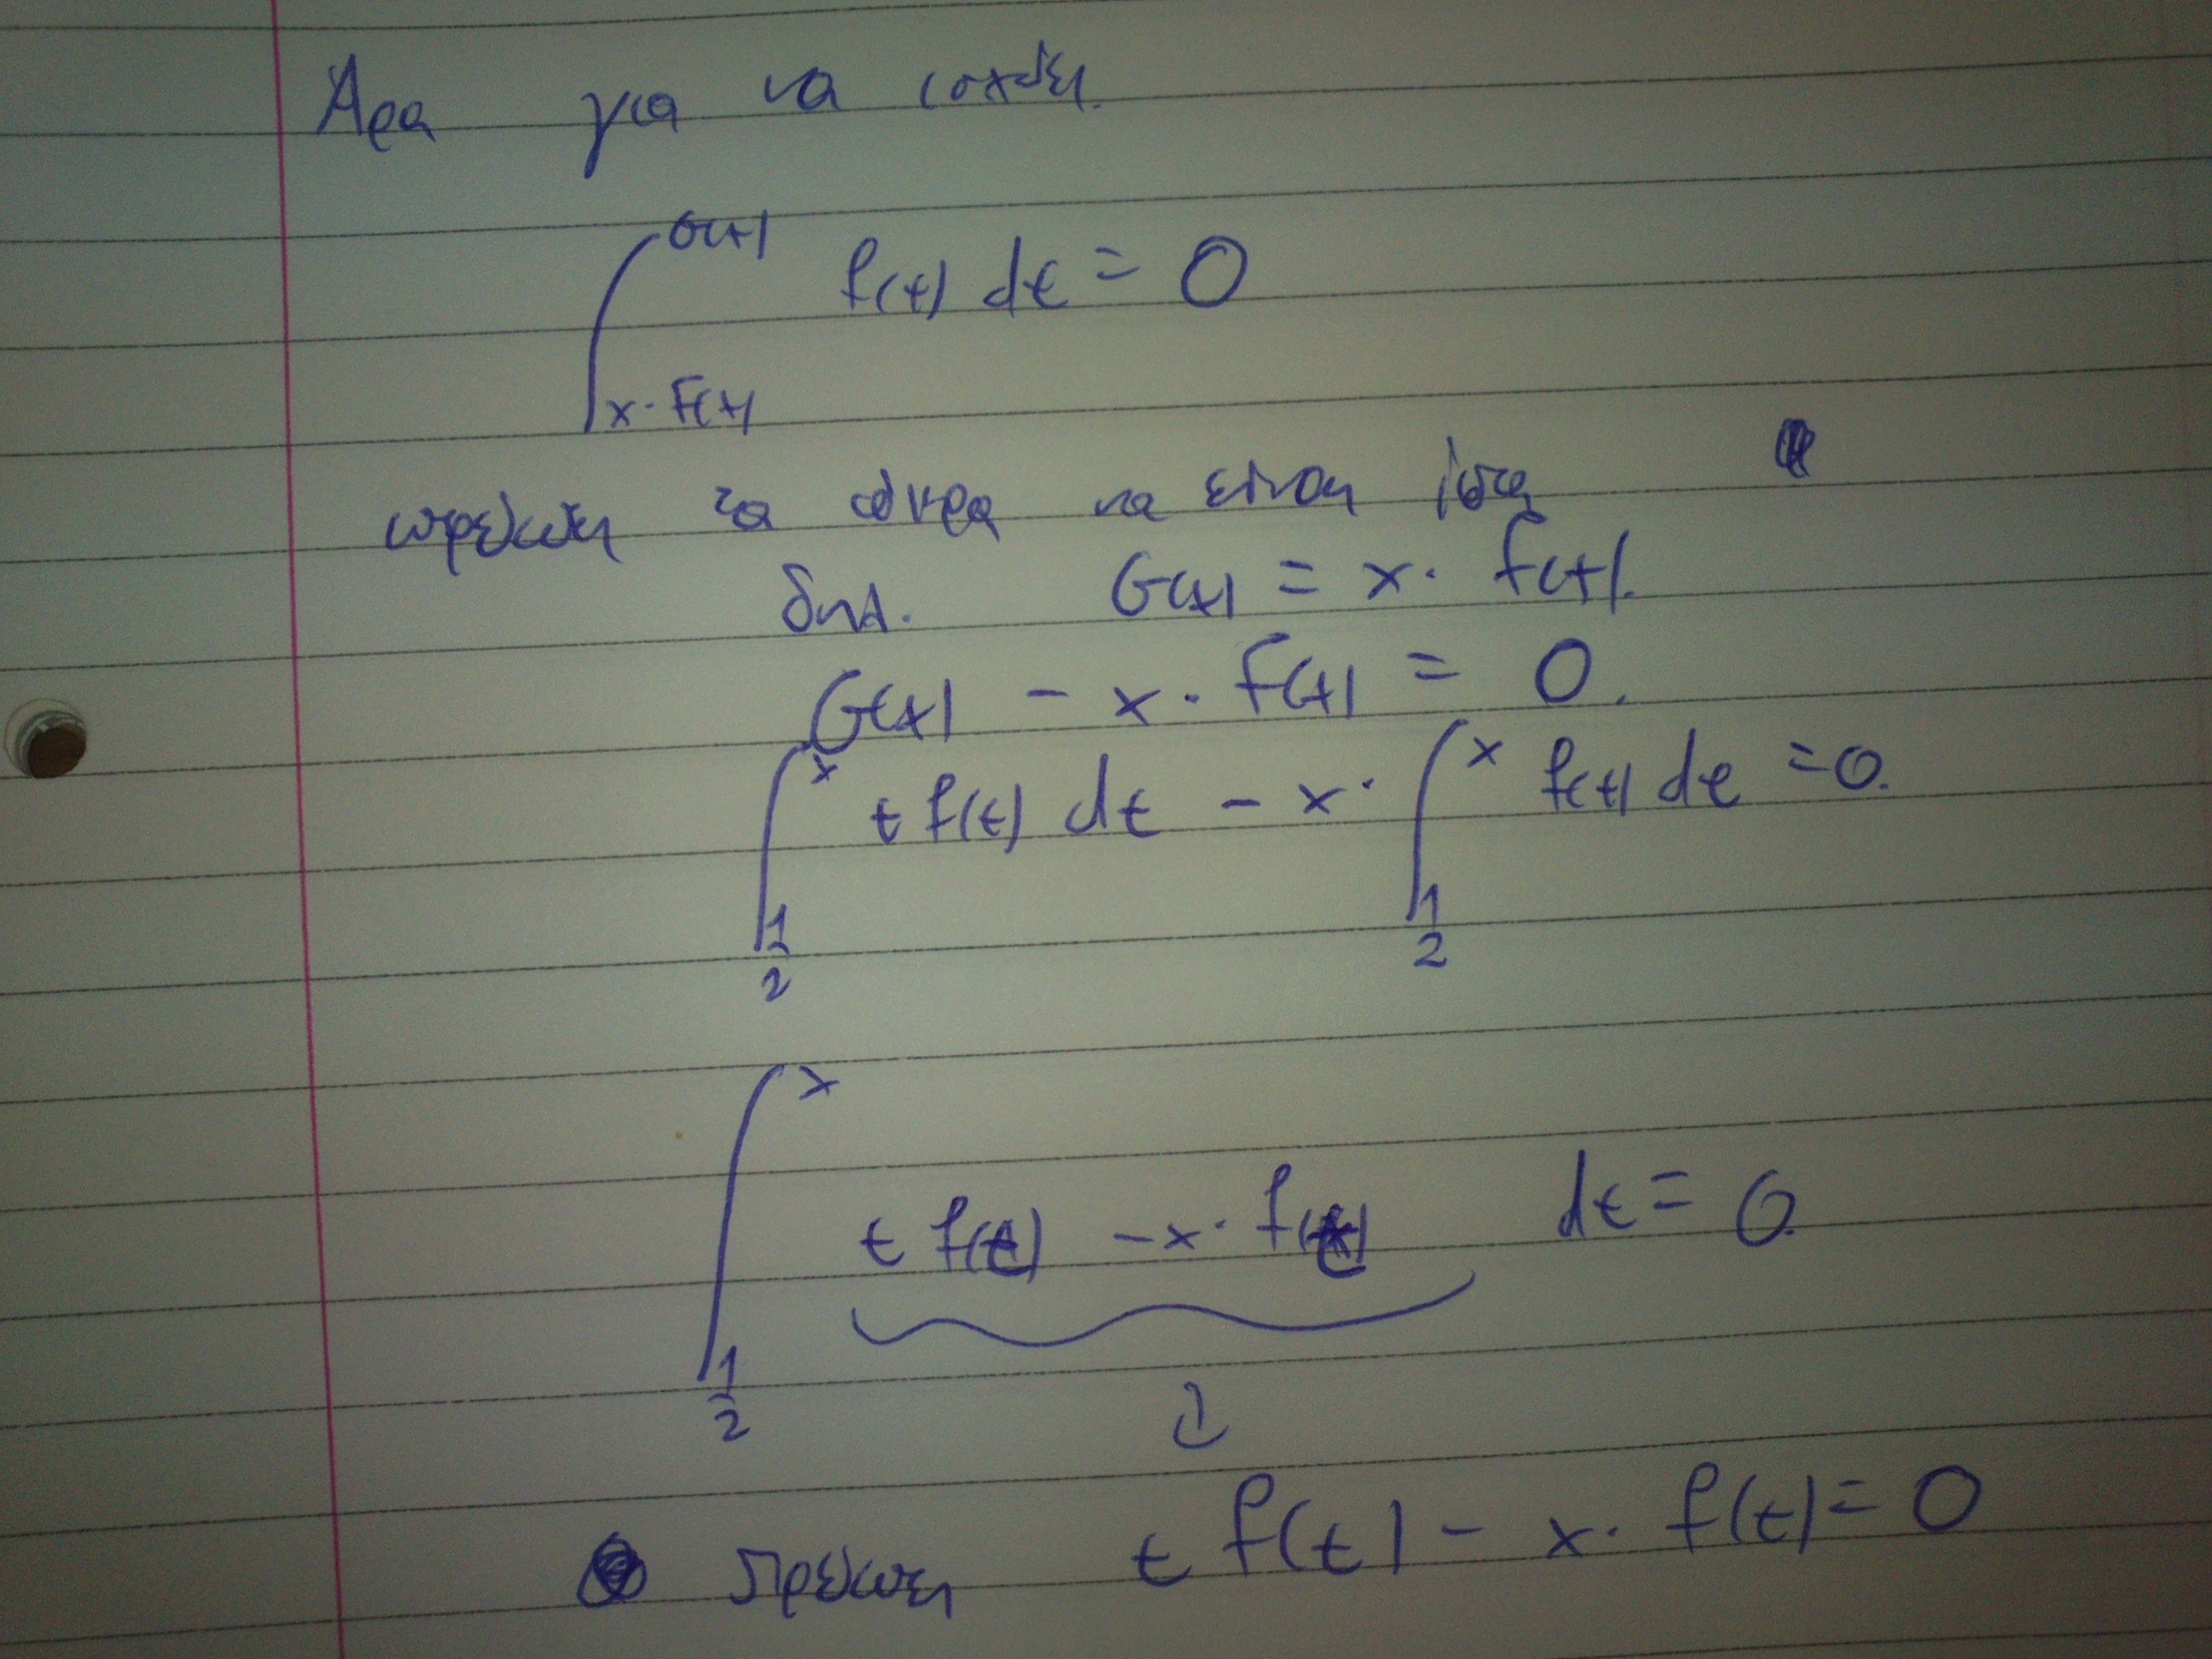 Άρα για να ισχύει.
∫_{x·F(x)}^{G(x)} f(t) dt = 0
πρέπει τα άκρα να είναι ίσα
δηλ. G(x) = x· F(x).
G(x) - x· F(x) = 0.
∫_{1/2}^{x} t f(t) dt - x· ∫_{1/2}^{x} f(t) dt = 0.
∫_{1/2}^{x} t f(t) - x· f(t) dt = 0.
Πρέπει t f(t) - x· f(t) = 0